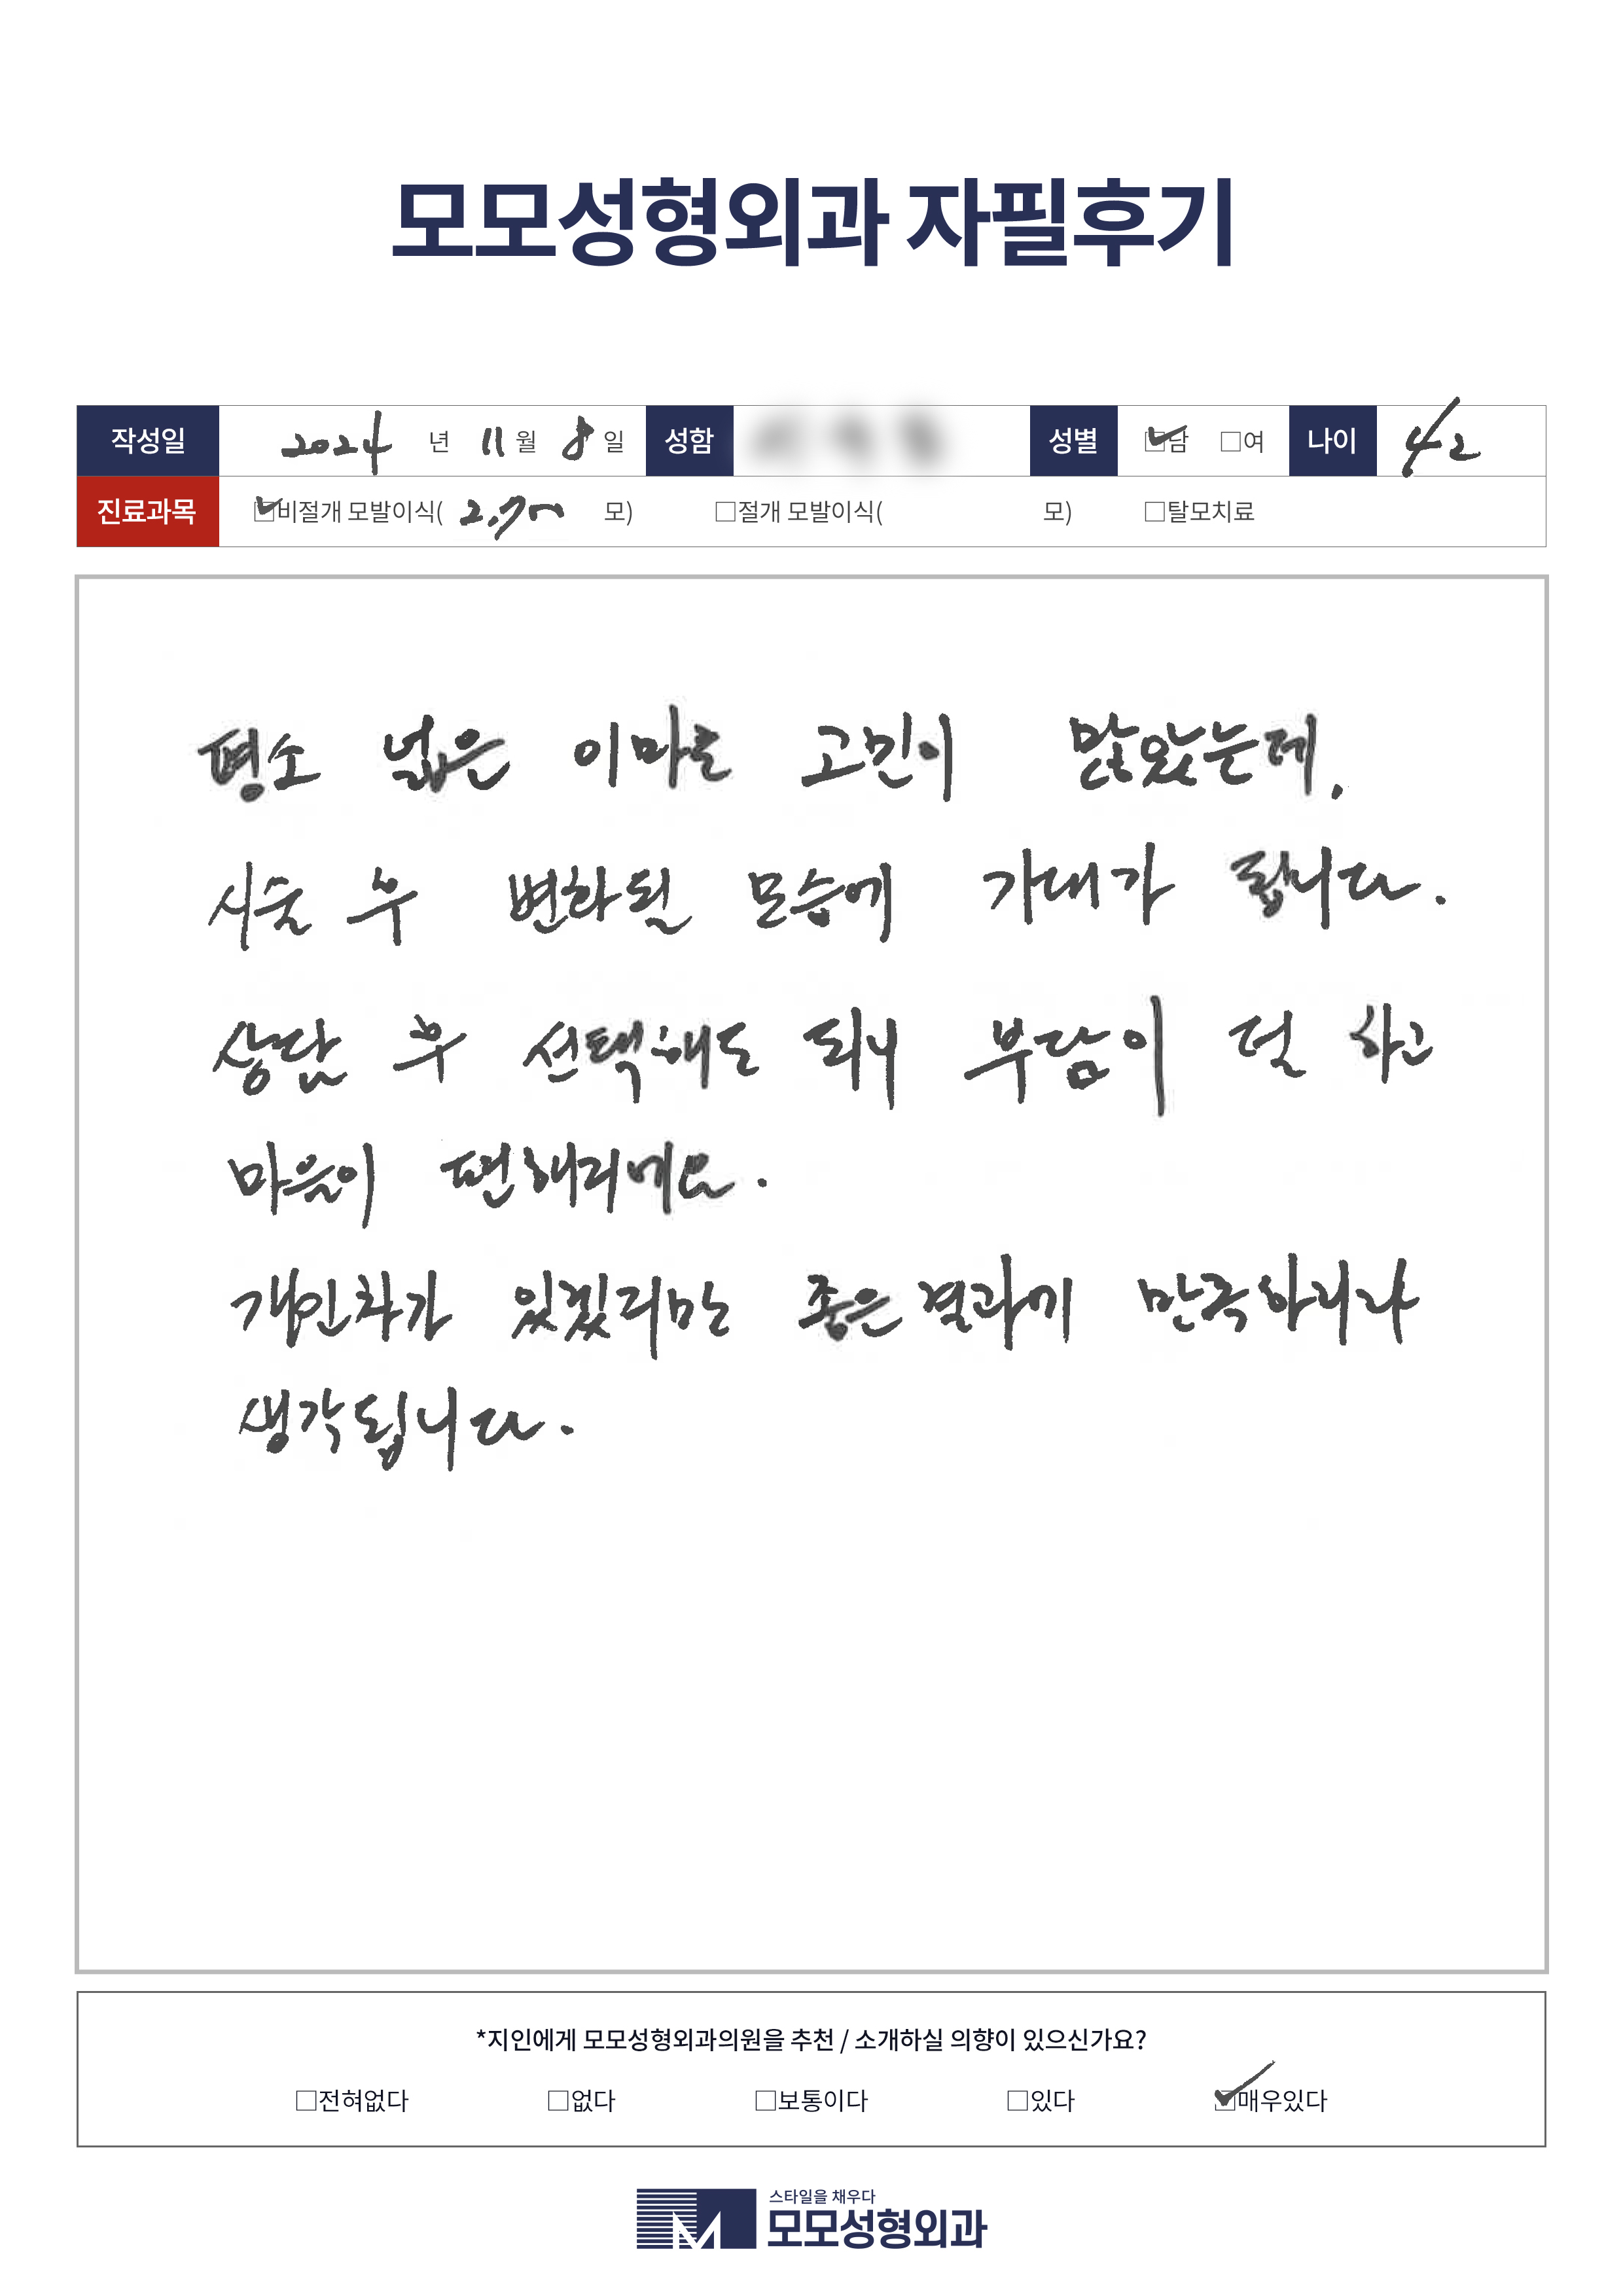 모모성형외과 자필후기
작성일 2024 년 11 월 8 일 성함 성별 ☑남 □여 나이 42
진료과목 ☑비절개 모발이식( 2,700 모) □절개 모발이식( 모) □탈모치료
평소 넓은 이마로 고민이 많았는데,
시술 후 변화될 모습에 기대가 됩니다.
상담 후 선택해도 되니 부담이 덜 하고
마음이 편해지네요.
개인차가 있겠지만 좋은 결과에 만족하리라
생각됩니다.
*지인에게 모모성형외과의원을 추천 / 소개하실 의향이 있으신가요?
□전혀없다 □없다 □보통이다 □있다 ☑매우있다
스타일을 채우다
모모성형외과